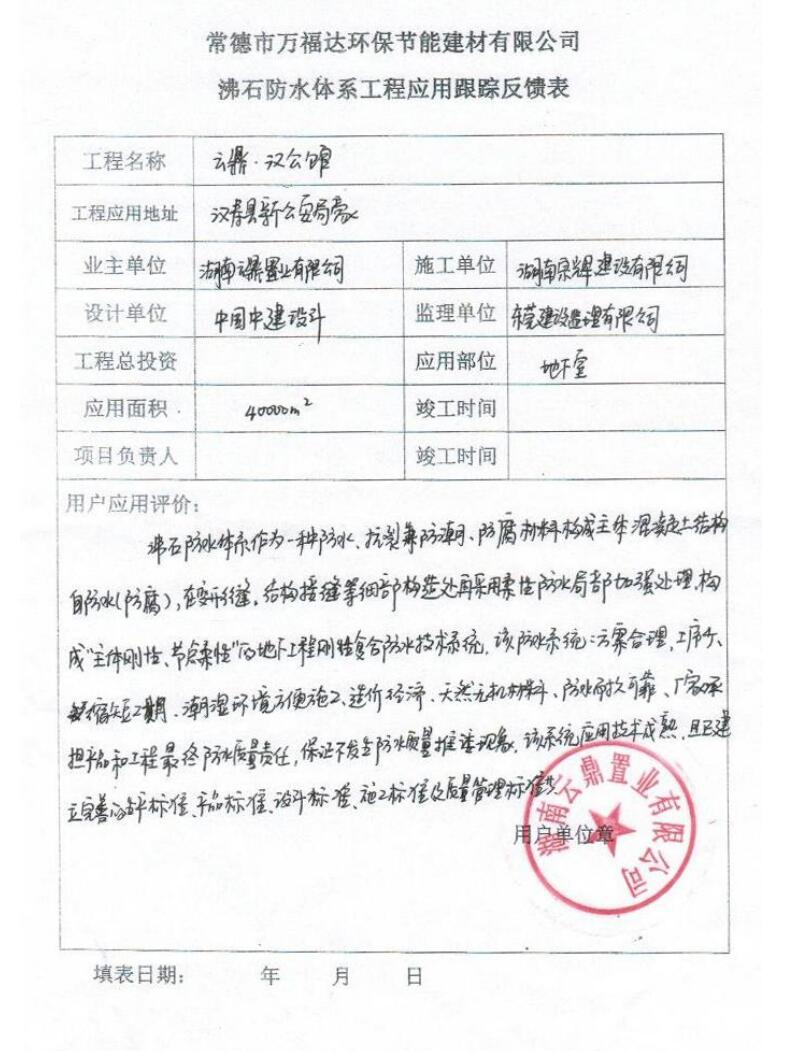 常德市万福达环保节能建材有限公司
沸石防水体系工程应用跟踪反馈表
工程名称 云鼎·汉公馆
工程应用地址 汉寿县新公安局旁
业主单位 湖南云鼎置业有限公司 施工单位 湖南京辉建设有限公司
设计单位 中国中建设计 监理单位 东莞建设监理有限公司
工程总投资 应用部位 地下室
应用面积 40000m² 竣工时间
项目负责人 竣工时间
用户应用评价:
沸石防水体系作为一种防水、抗裂兼防潮、防腐材料构成主体混凝土结构
自防水(防腐),在变形缝,结构接缝等细部构造处再采用柔性防水局部加强处理,构
成"主体刚性、节点柔性"的地下工程刚柔复合防水技术系统,该防水系统:方案合理,工序少、
缩短工期、潮湿环境方便施工、造价经济、天然无机材料、防水耐久可靠、厂家承
担产品和工程最终防水质量责任,保证不发生防水质量推诿现象,该系统应用技术成熟,且已建
立完善的标准、产品标准、设计标准、施工标准及质量管理标准
用户单位章
湖南云鼎置业有限公司
填表日期: 年 月 日